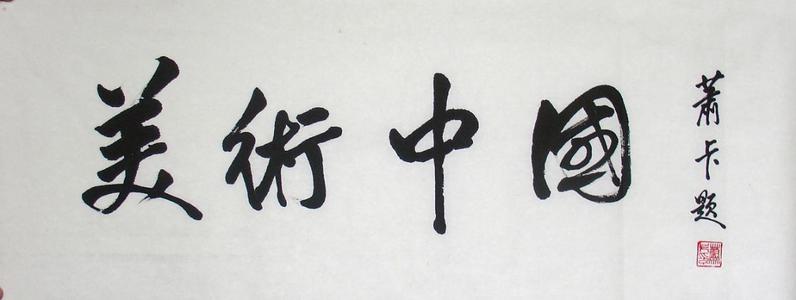 美術中國
蕭卡题